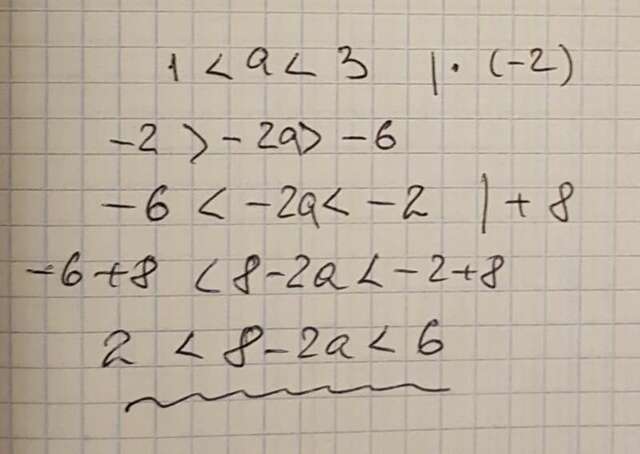 1 < a < 3 | · (-2)
-2 > -2a > -6
-6 < -2a < -2 | + 8
-6 + 8 < 8 - 2a < -2 + 8
2 < 8 - 2a < 6